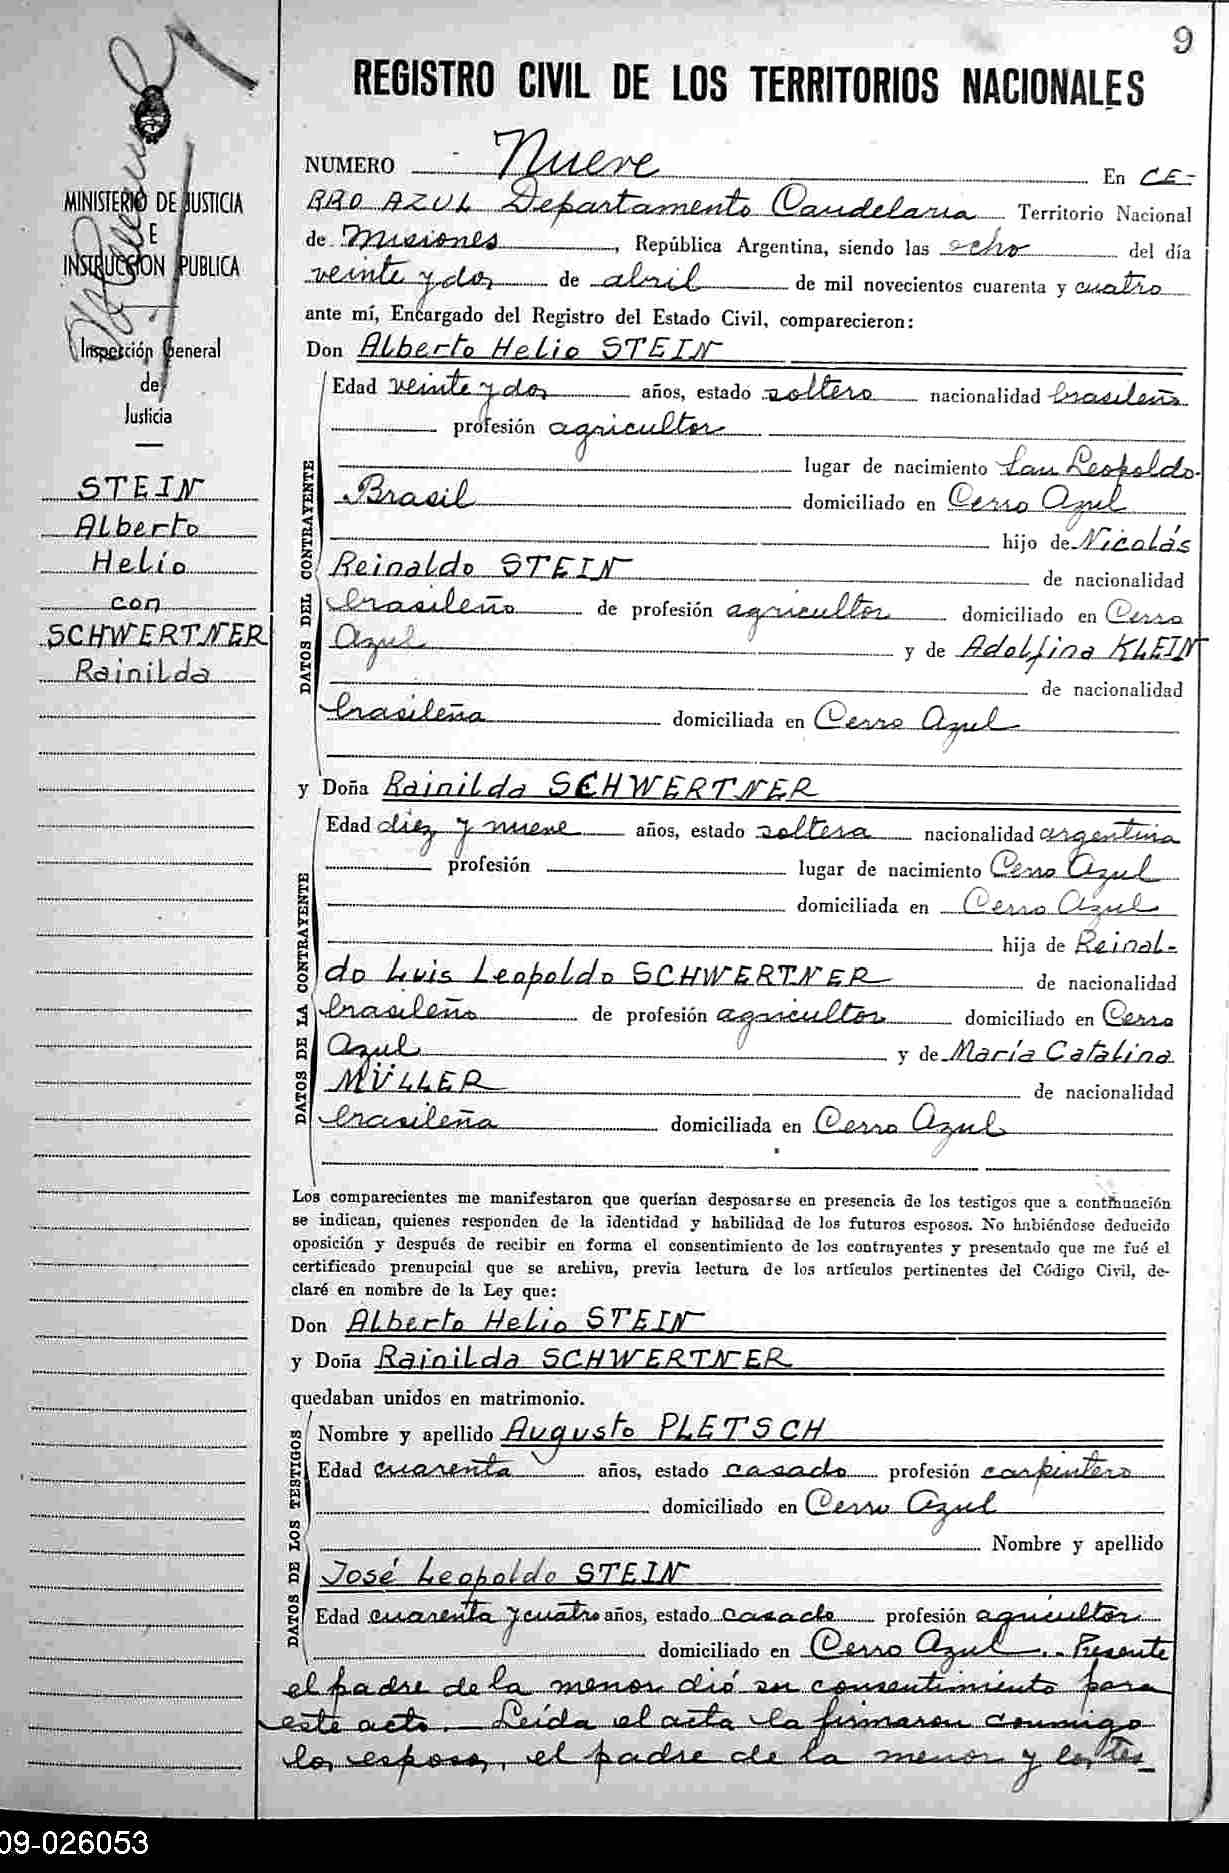 9
REGISTRO CIVIL DE LOS TERRITORIOS NACIONALES
MINISTERIO DE JUSTICIA
E
INSTRUCCION PUBLICA
Inspección General
de
Justicia
STEIN
Alberto
Helio
con
SCHWERTNER
Rainilda
NUMERO Nueve En CE-
RRO AZUL Departamento Candelaria Territorio Nacional
de Misiones, República Argentina, siendo las ocho del día
veinte y dos de abril de mil novecientos cuarenta y cuatro
ante mí, Encargado del Registro del Estado Civil, comparecieron:
Don Alberto Helio STEIN
DATOS DEL CONTRAYENTE
Edad veinte y dos años, estado soltero nacionalidad brasileño
profesión agricultor
lugar de nacimiento San Leopoldo-
Brasil domiciliado en Cerro Azul
hijo de Nicolás
Reinaldo STEIN de nacionalidad
brasileño de profesión agricultor domiciliado en Cerro
Azul y de Adolfina KLEIN
de nacionalidad
brasileña domiciliada en Cerro Azul
y Doña Rainilda SCHWERTNER
DATOS DE LA CONTRAYENTE
Edad diez y nueve años, estado soltera nacionalidad argentina
profesión lugar de nacimiento Cerro Azul
domiciliada en Cerro Azul
hija de Reinal-
do Luis Leopoldo SCHWERTNER de nacionalidad
brasileño de profesión agricultor domiciliado en Cerro
Azul y de María Catalina
MÜLLER de nacionalidad
brasileña domiciliada en Cerro Azul
Los comparecientes me manifestaron que querían desposarse en presencia de los testigos que a continuación
se indican, quienes responden de la identidad y habilidad de los futuros esposos. No habiéndose deducido
oposición y después de recibir en forma el consentimiento de los contrayentes y presentado que me fué el
certificado prenupcial que se archiva, previa lectura de los artículos pertinentes del Código Civil, de-
claré en nombre de la Ley que:
Don Alberto Helio STEIN
y Doña Rainilda SCHWERTNER
quedaban unidos en matrimonio.
DATOS DE LOS TESTIGOS
Nombre y apellido Augusto PLETSCH
Edad cuarenta años, estado casado profesión carpintero
domiciliado en Cerro Azul
Nombre y apellido
José Leopoldo STEIN
Edad cuarenta y cuatro años, estado casado profesión agricultor
domiciliado en Cerro Azul.- Presente
el padre de la menor dió su consentimiento para
este acto. Leída el acta la firmaron conmigo
los esposos, el padre de la menor y los tes-
09-026053